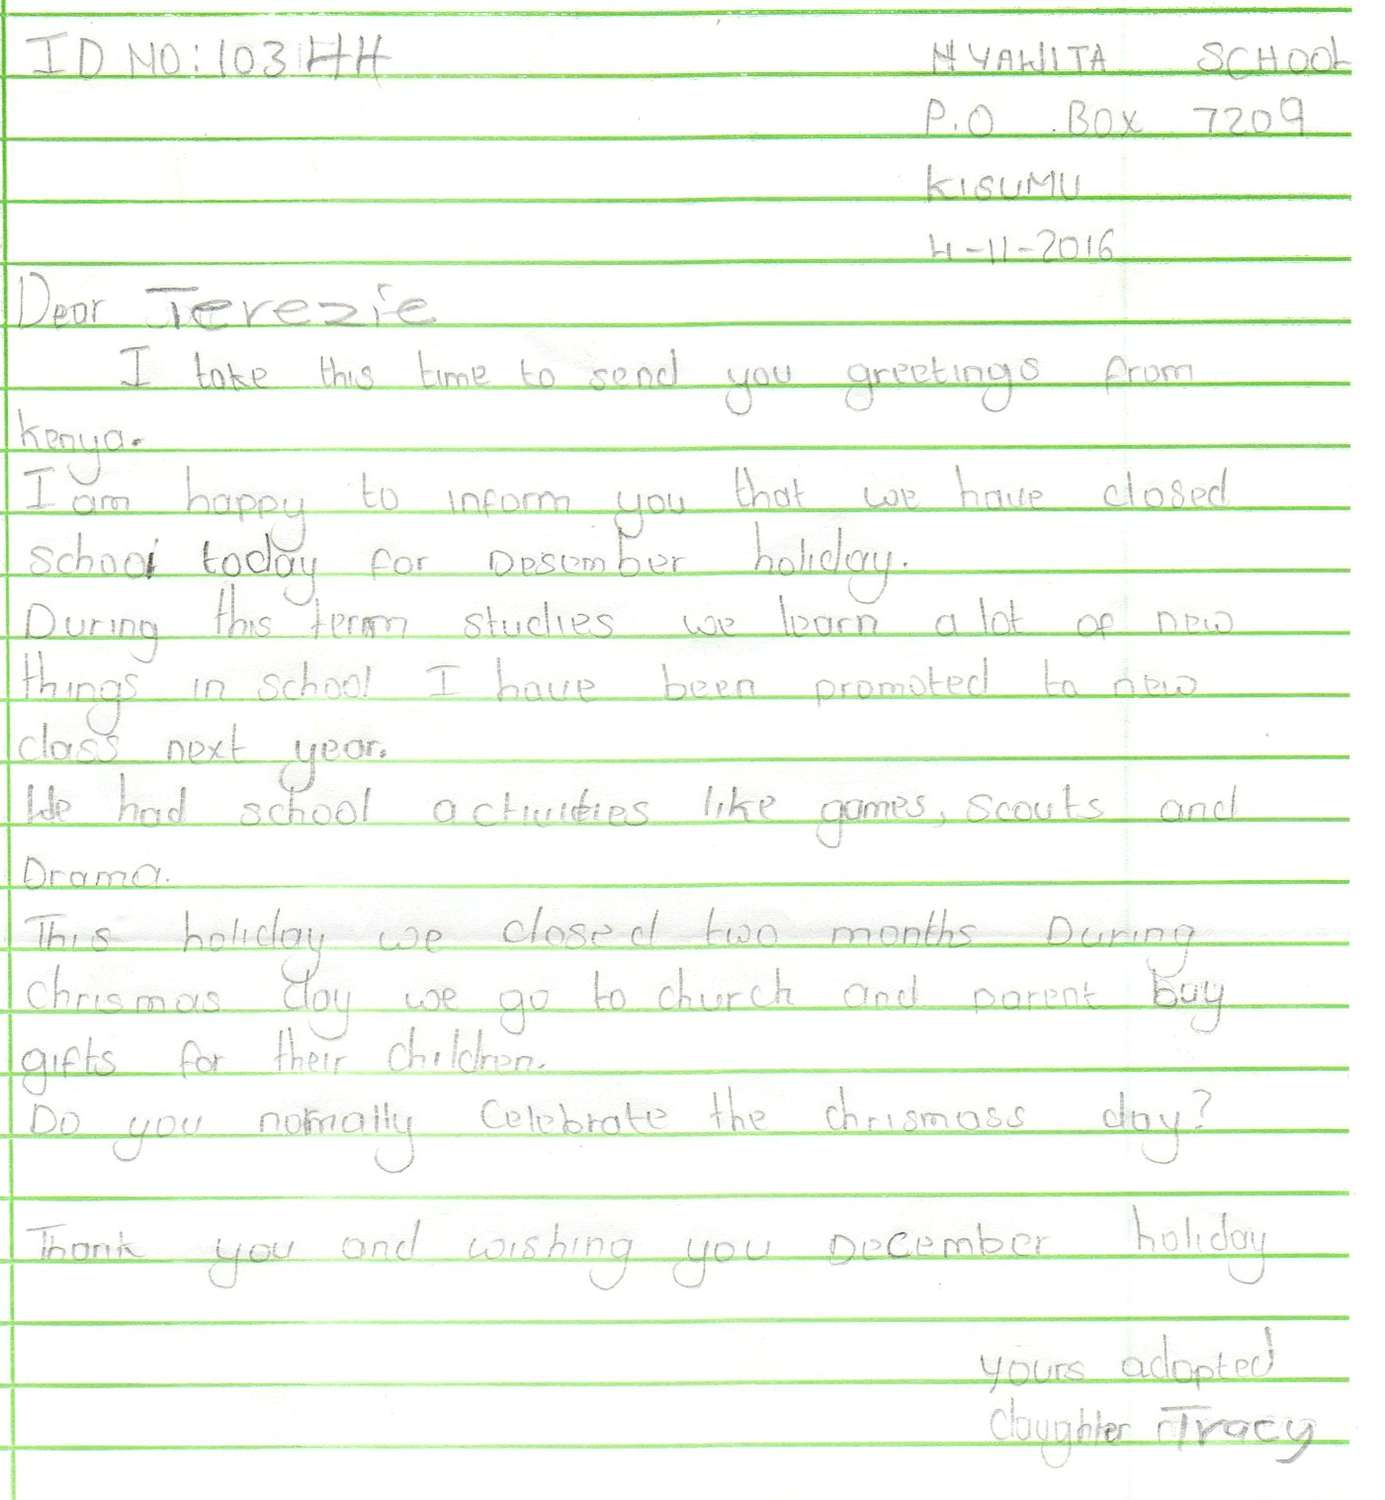 ID NO: 103HH
NYAWITA SCHOOL
P.O BOX 7209
KISUMU
4-11-2016
Dear Terezie
I take this time to send you greetings from
kenya.
I am happy to inform you that we have closed
school today for Desember holiday.
During this term studies we learn a lot of new
things in school I have been promoted to new
class next year.
We had school activities like games, scouts and
Drama.
This holiday we closed two months During
chrismas day we go to church and parent buy
gifts for their children.
Do you normally celebrate the chrismass day?
Thank you and wishing you December holiday
yours adopted
daughter Tracy